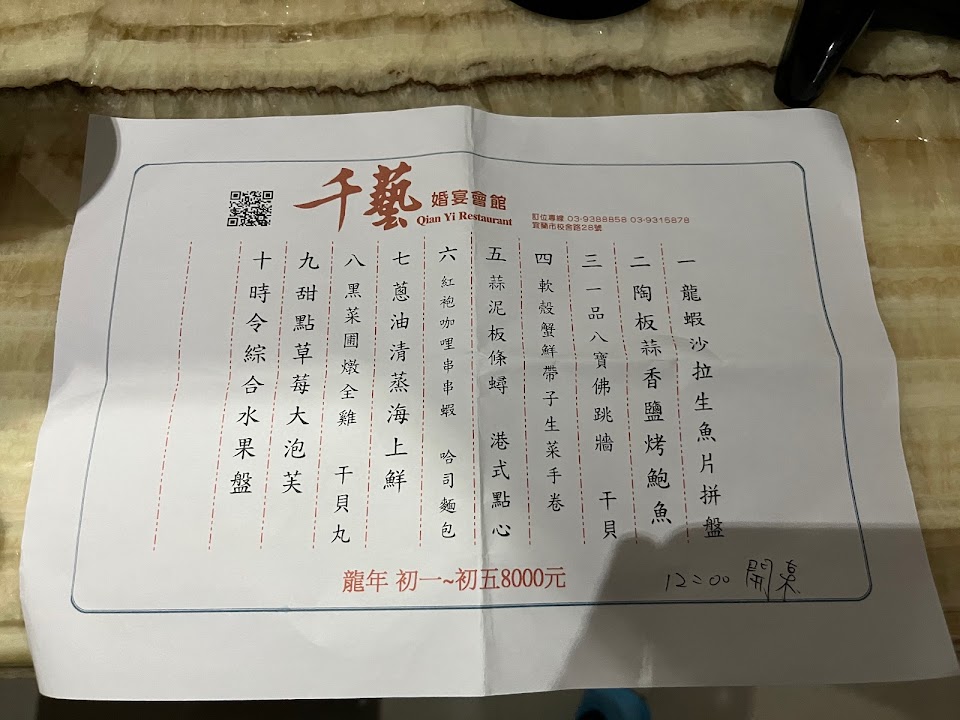 千藝 婚宴會館
Qian Yi Restaurant
訂位專線 03-9388858 03-9315878
宜蘭市校舍路28號
一 龍蝦沙拉生魚片拼盤
二 陶板蒜香鹽烤鮑魚
三 一品八寶佛跳牆 干貝
四 軟殼蟹鮮帶子生菜手卷
五 蒜泥板條蟳 港式點心
六 紅袍咖哩串串蝦 哈司麵包
七 蔥油清蒸海上鮮
八 黑菜圃燉全雞 干貝丸
九 甜點草莓大泡芙
十 時令綜合水果盤
龍年 初一~初五8000元
12:00 開桌